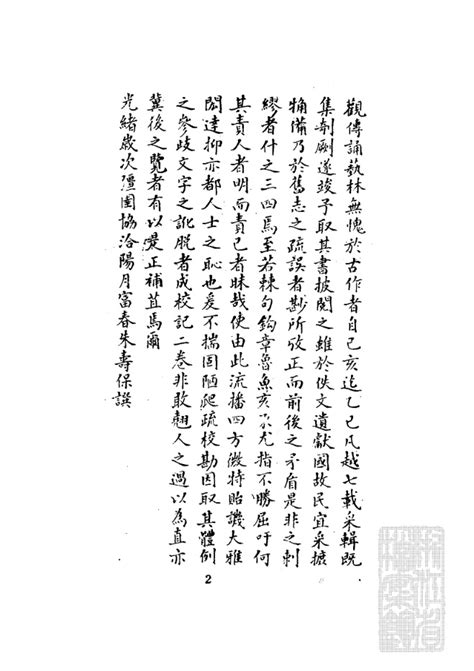 觀傳誦藝林無愧於古作者自己亥迄乙巳凡越七載采輯既
集剞劂遂竣予取其書披閱之雖於佚文遺獻國故民宜采摭
犕備乃於舊志之疏誤者尠所攷正而前後之矛盾是非之刺
繆者什之三四焉至若棘句鈎章魯魚亥豕尤指不勝屈吁何
其責人者明而責己者昧哉使由此流播四方微特貽譏大雅
閎達抑亦都人士之恥也爰不揣固陋爬疏校勘因取其體例
之參歧文字之訛脫者成校記二卷非敢翹人之過以為直亦
冀後之覽者有以是正補苴焉爾
光緒歲次彊圉協洽陽月富春朱壽保譔
2